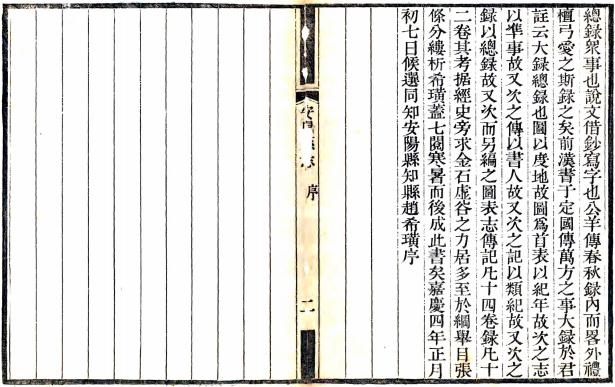 總録衆事也說文借鈔寫字也公羊傳春秋録内而畧外禮
檀弓愛之斯録之矣前漢書于定國傳萬方之事大録於君
註云大録總録也圖以度地故圖爲首表以紀年故次之志
以凖事故又次之傳以書人故又次之記以類紀故又次之
録以總録故又次而另編之圖表志傳記凡十四卷録凡十
二卷其考据經史旁求金石虛谷之力居多至於綱舉目張
條分縷析希璜蓋七閲寒暑而後成此書矣嘉慶四年正月
初七日候選同知安陽縣知縣趙希璜序
安 縣志 序 二